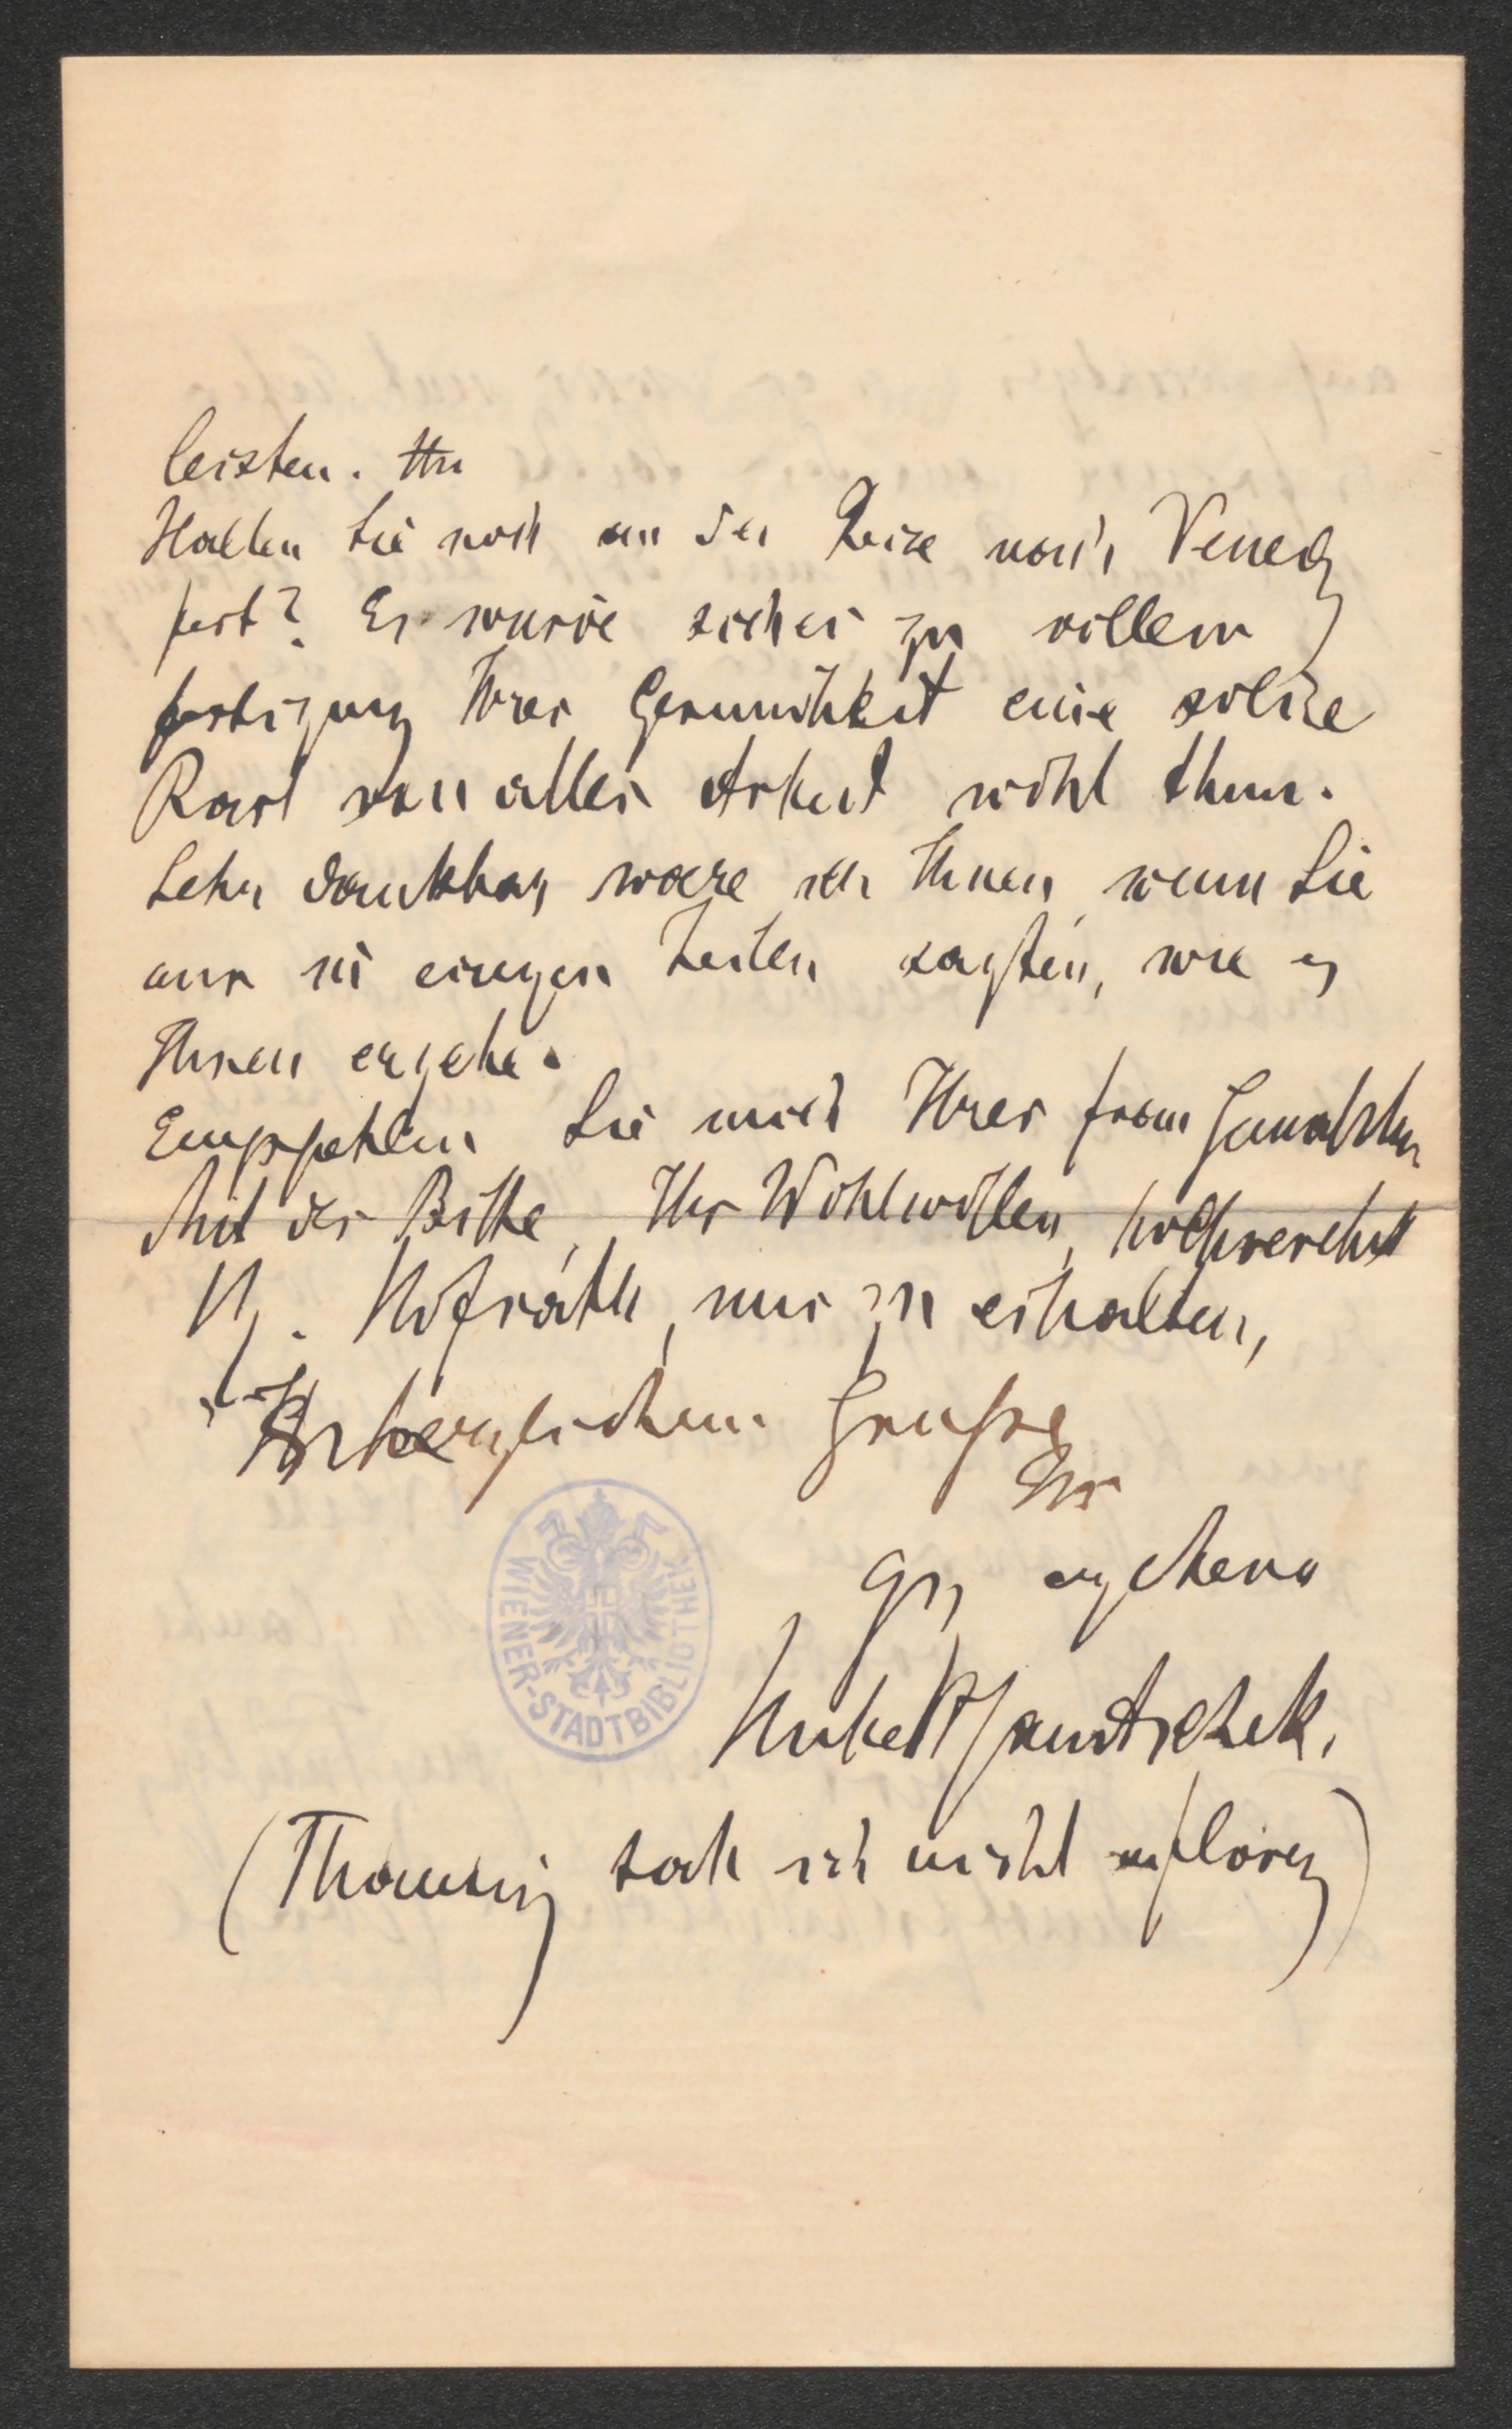 leisten. Ihr
Halten Sie noch an der Reise nach Venedig
fest? Es würde sicher zu vollem
festigung Ihrer Gesundheit eine solche
Rast von aller Arbeit wohl thun.
Sehr dankbar waere ich Ihnen, wenn Sie
mir in einigen Zeilen sagten, wie es
Ihnen ergehe.
Empfehlen Sie mich Ihrer Frau Gemahlin
Mit der Bitte, Ihr Wohlwollen, hochverehrt
H. Hofrath, mir zu erhalten,
herzlichem Grusse
Ihr
ganz ergebener
Hubert Janitschek.
(Thausing sah ich nicht in Florenz)
WIENER-STADTBIBLIOTHEK